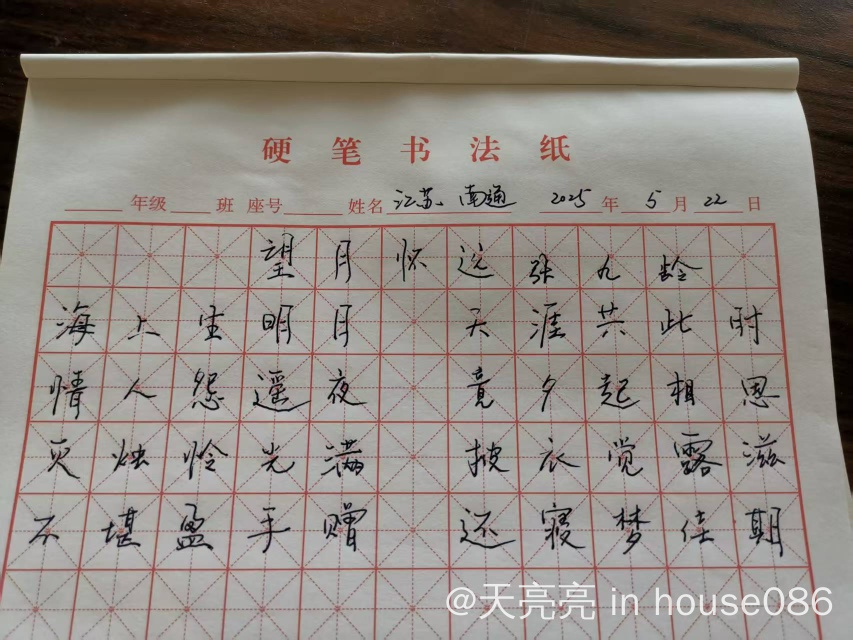 硬笔书法纸
年级 班 座号 姓名 江苏、南通 2025年 5月 22日
望月怀远 张九龄
海上生明月 天涯共此时
情人怨遥夜 竟夕起相思
灭烛怜光满 披衣觉露滋
不堪盈手赠 还寝梦佳期
@天亮亮 in house086